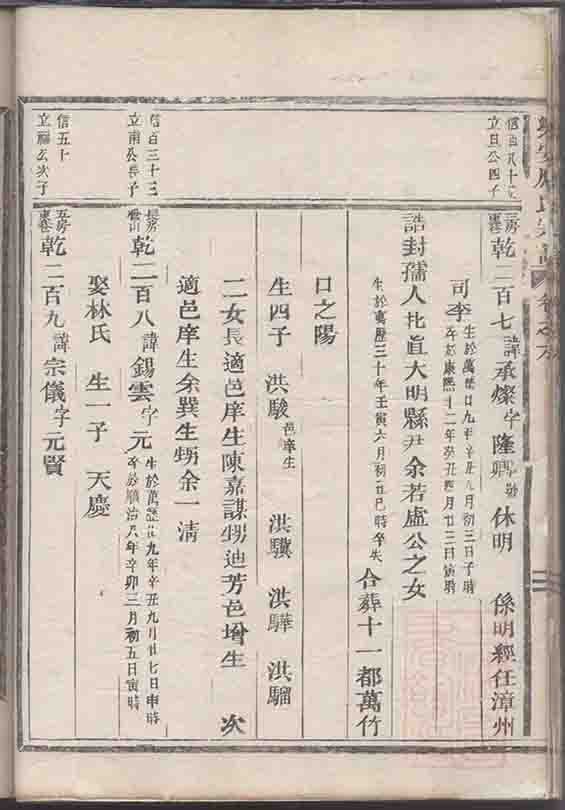 立旦公四子
三房
乾二百七諱承燦字隆卿號休明 係明經任漳州
司李 生於萬歷廿九年辛丑八月初三日子時
卒於康熙十二年癸丑四月廿三日寅時
誥封孺人北直大明縣尹余若虛公之女
生於萬歷三十年壬寅六月初五巳時卒失 合葬十一都萬竹
口之陽
生四子 洪駿邑庠生 洪驥 洪驊 洪騮
二女長適邑庠生陳嘉謀甥迪芳邑增生 次
適邑庠生余巽生甥余一清
信百三十三
立南公長子
長房
乾二百八諱錫雲字元
生於萬歷廿九年辛丑九月廿七日申時
卒於順治八年辛卯三月初五日寅時
娶林氏 生一子 天慶
信五十
立福公次子
五房
乾二百九諱宗儀字元賢